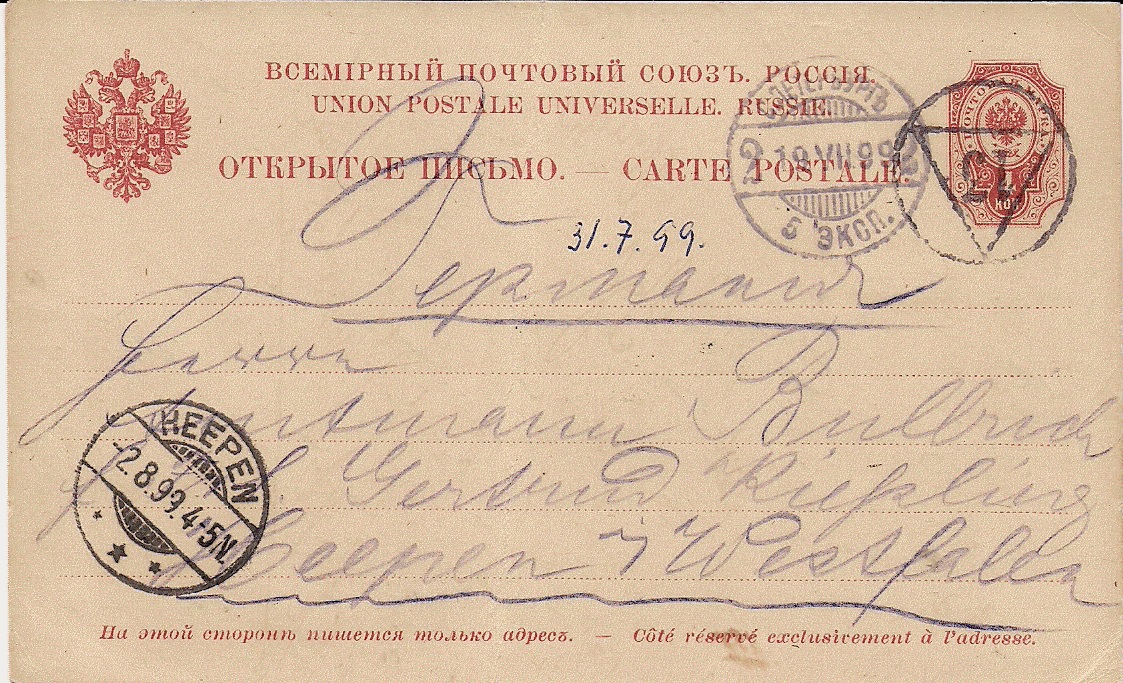 ВСЕМІРНЫЙ ПОЧТОВЫЙ СОЮЗЪ. РОССІЯ.
UNION POSTALE UNIVERSELLE. RUSSIE.
ПОЧТОВАЯ МАРКА
4
КОП
ОТКРЫТОЕ ПИСЬМО. — CARTE POSTALE.
С.ПЕТЕРБУРГЪ
19 VII 99
5 ЭКСП.
31.7.99.
Германія
Herrn
Amtmann Bullrich
Gertrud Kießling
Heepen i/ Westfalen
HEEPEN
-2.8.99.4-5N.
На этой сторонѣ пишется только адресъ. — Côté réservé exclusivement à l'adresse.